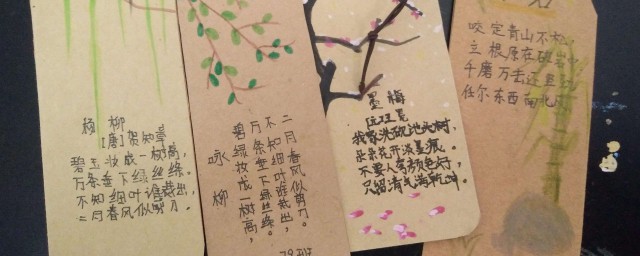 杨 柳
[唐]贺知章
碧玉妆成一树高,
万条垂下绿丝绦。
不知细叶谁裁出,
二月春风似剪刀。
咏柳
碧绿妆成一树高,
万条垂下绿丝绦。
不知细叶谁裁出,
二月春风似剪刀。
墨 梅
王冕
我家洗砚池头树,
朵朵花开淡墨痕。
不要人夸颜色好,
只留清气满乾坤。
咬定青山不
立根原在
千磨万击还
任尔东西南北风